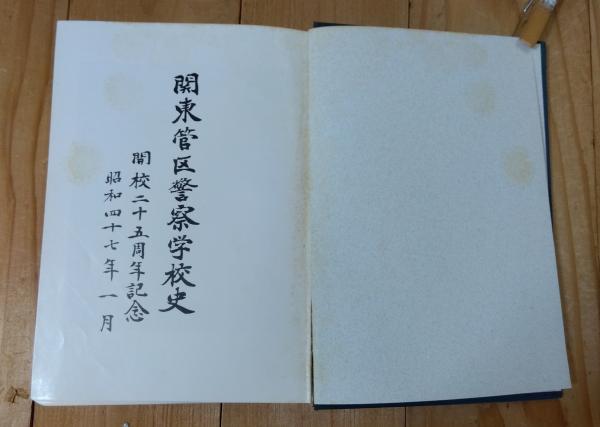 関東管区警察学校史
開校二十五周年記念
昭和四十七年一月